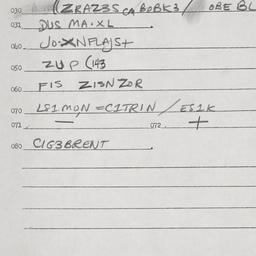 030 (ZRAZ3S CA BOBK3/ OBE BL
031 DUS MA·XL.
040 JO·XNFLAJS+
050 ZUP (143
060 FIS ZISNZOR
070 LS1MON=C1TRIN/ES1K
071 — 072 +
080 CIG3BRENT.